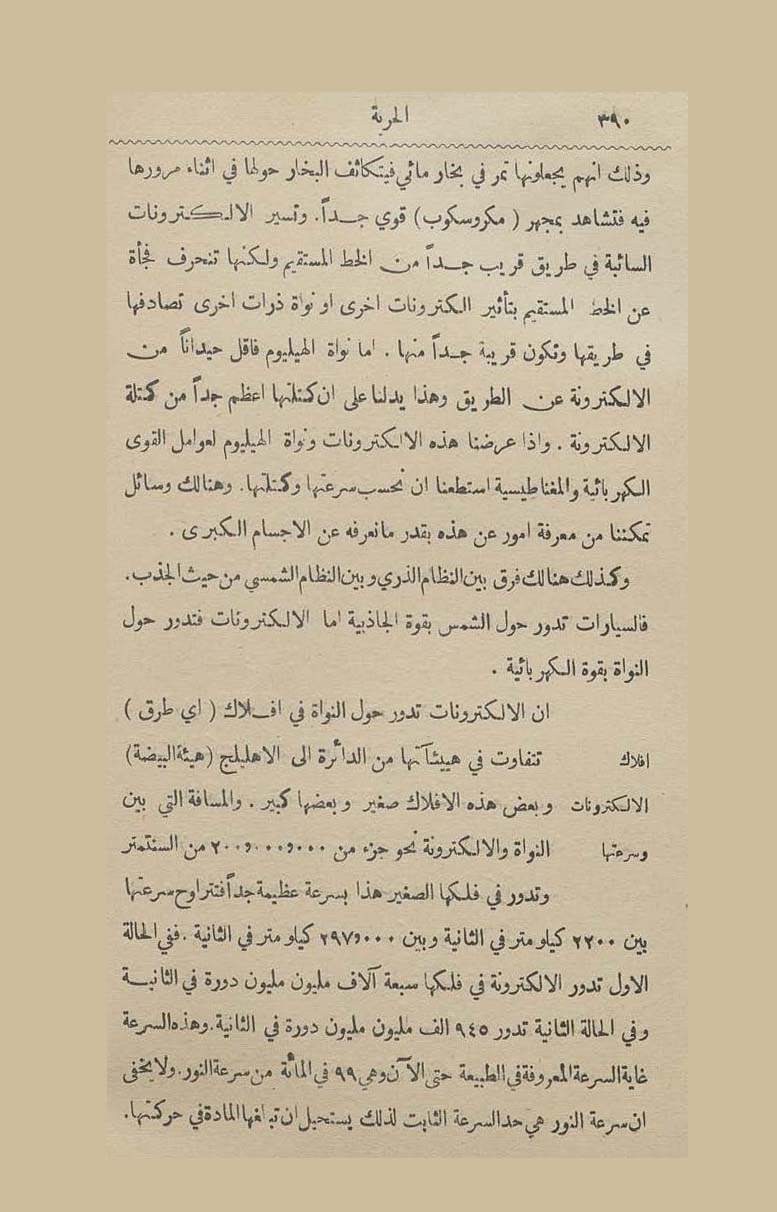 ٣٩٠
الحرية
وذلك انهم يجعلونها تمر في بخار مائي فيتكاثف البخار حولها في اثناء مرورها
فيه فتشاهد بمجهر ( مكروسكوب ) قوي جداً. وتسير الالكترونات
السائبة في طريق قريب جداً من الخط المستقيم ولكنها تنحرف فجأة
عن الخط المستقيم بتأثير الكترونات اخرى او نواة ذرات اخرى تصادفها
في طريقها وتكون قريبة جداً منها . اما نواة الهيليوم فاقل حيداناً من
الالكترونة عن الطريق وهذا يدلنا على ان كتلتها اعظم جداً من كتلة
الالكترونة . واذا عرضنا هذه الالكترونات ونواة الهيليوم لعوامل القوى
الكهربائية والمغناطيسية استطعنا ان نحسب سرعتها وكتلتها. وهنالك وسائل
تمكننا من معرفة امور عن هذه بقدر مانعرفه عن الاجسام الكبرى .
وكذلك هنالك فرق بين النظام الذري وبين النظام الشمسي من حيث الجذب.
فالسيارات تدور حول الشمس بقوة الجاذبية اما الالكترونات فتدور حول
النواة بقوة الكهربائية .
ان الالكترونات تدور حول النواة في افلاك ( اي طرق )
افلاك تتفاوت في هيئآتها من الدائرة الى الاهليلج (هيئة البيضة)
الالكترونات وبعض هذه الافلاك صغير وبعضها كبير . والمسافة التي بين
وسرعتها النواة والالكترونة نحو جزء من ٢٠٠,٠٠٠,٠٠٠ من السنتمتر
وتدور في فلكها الصغير هذا بسرعة عظيمة جداً فتتراوح سرعتها
بين ٢٢٠٠ كيلو متر في الثانية وبين ٢٩٧,٠٠٠ كيلو متر في الثانية . ففي الحالة
الاول تدور الالكترونة في فلكها سبعة آلاف مليون مليون دورة في الثانية
وفي الحالة الثانية تدور ٩٤٥ الف مليون مليون دورة في الثانية. وهذه السرعة
غاية السرعة المعروفة في الطبيعة حتى الآن وهي ٩٩ في المائة من سرعة النور. ولا يخفى
ان سرعة النور هي حد السرعة الثابت لذلك يستحيل ان تبلغها المادة في حركتها.